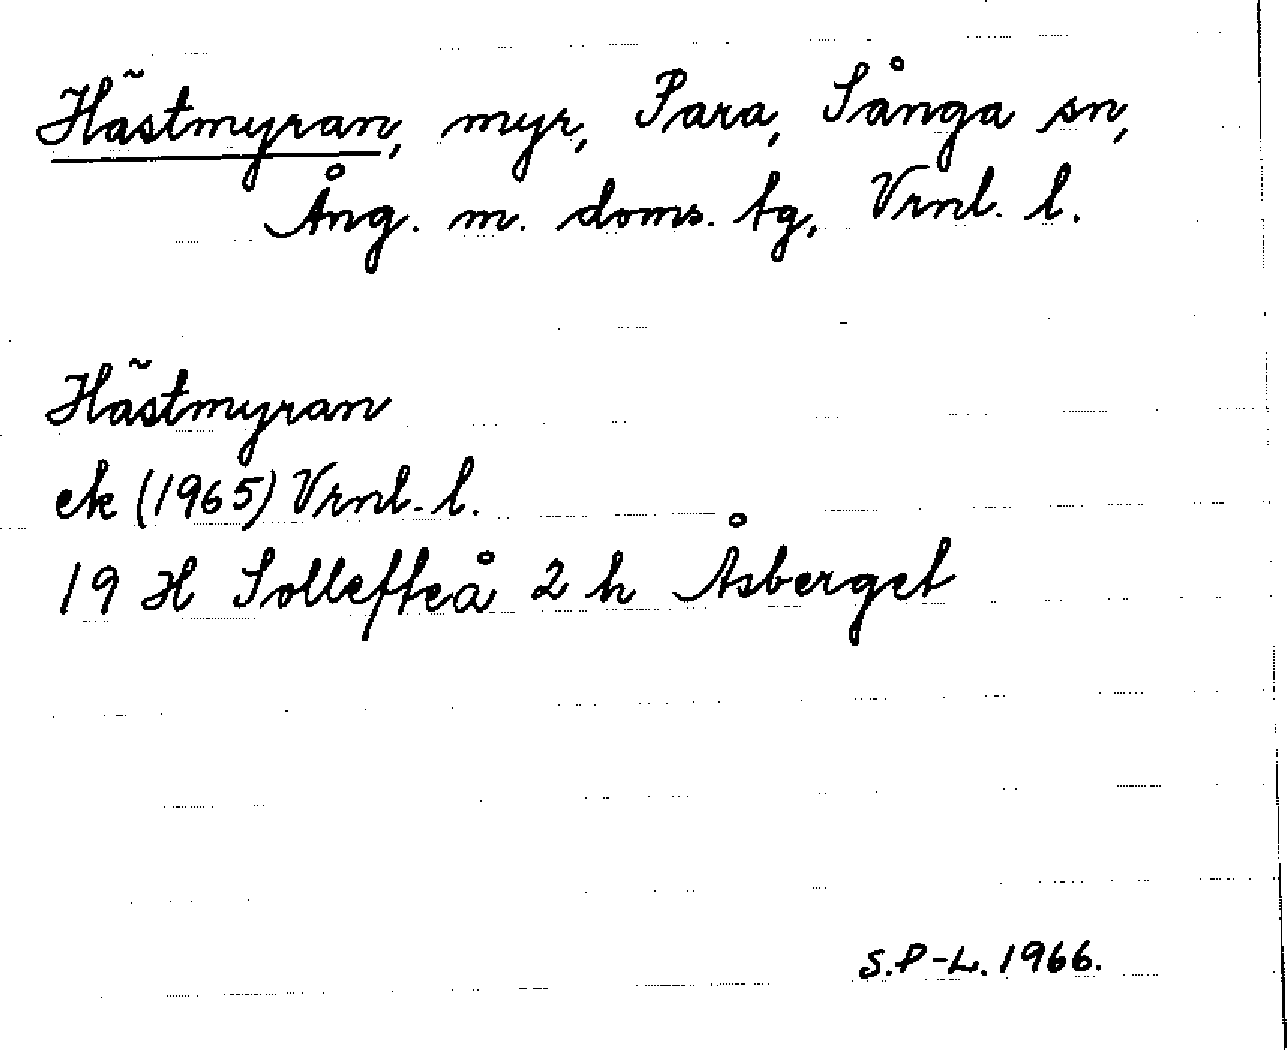 Hästmyran, myr, Para, Sånga sn,
Ång. m. doms. tg, Vrnl. l.
Hästmyran
ek (1965) Vrnl. l.
19 H Sollefteå 2 h Åsberget
S.P-L. 1966.